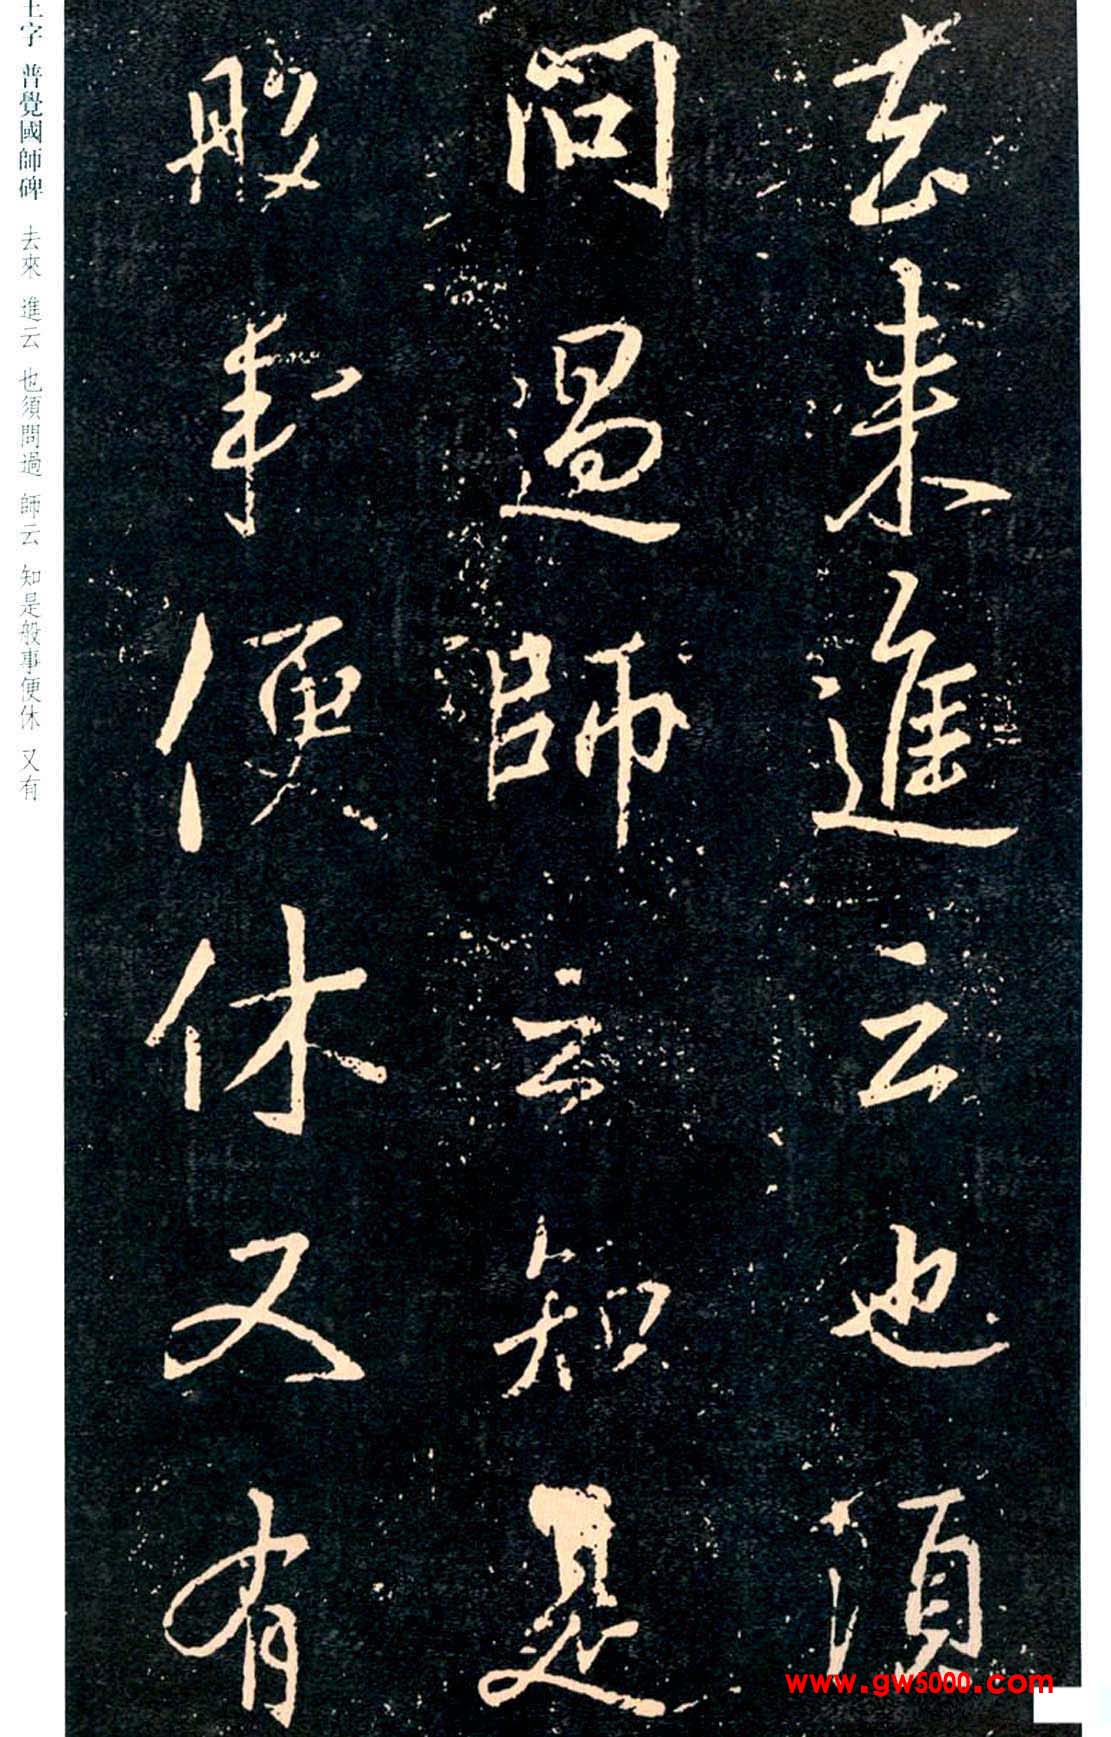 去来進云也須
問過師云知是
般事便休又有
王字 普覺國師碑 去來 進云 也須問過 師云 知是般事便休 又有
www.gw5000.com